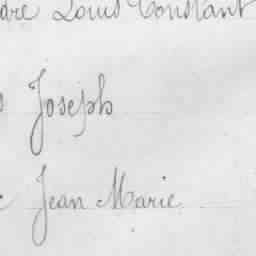 dre Louis Constant
Joseph
Jean Marie